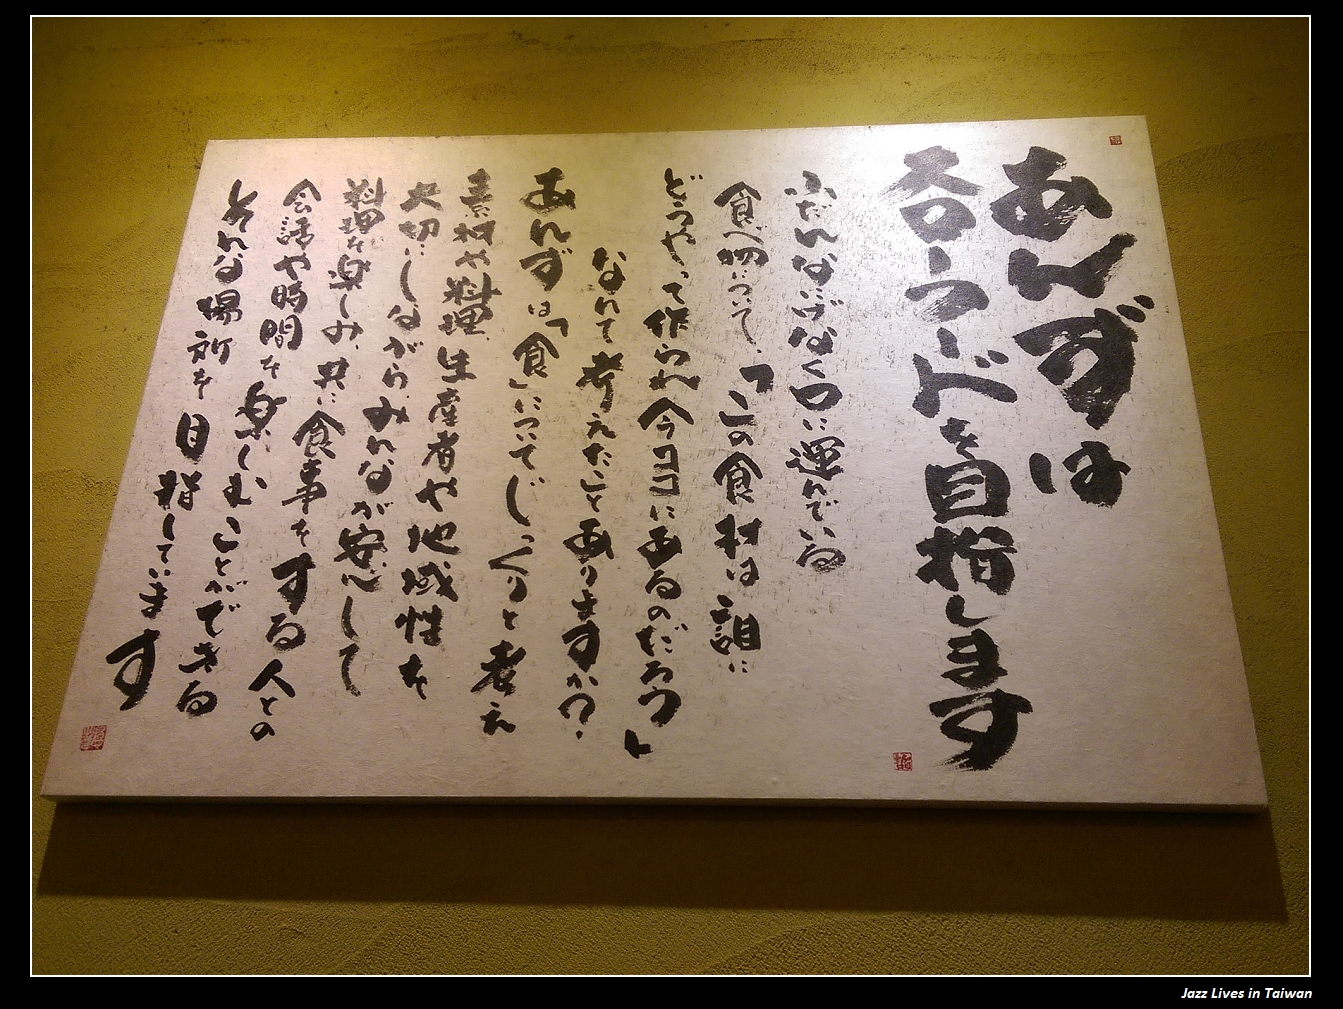 あんずは
を目指します
ふだんなにげなく口に運んでいる
食べ物について、「この食材は誰に
どうやって作られ今ココにあるのだろう」
なんて考えたことありますか?
あんずは「食」についてじっくりと考え
素材や料理、生産者や地域性を
大切にしながらみんなが安心して
料理を楽しみ、共に食事をする人との
会話や時間を楽しむことができる
そんな場所を目指しています
Jazz Lives in Taiwan